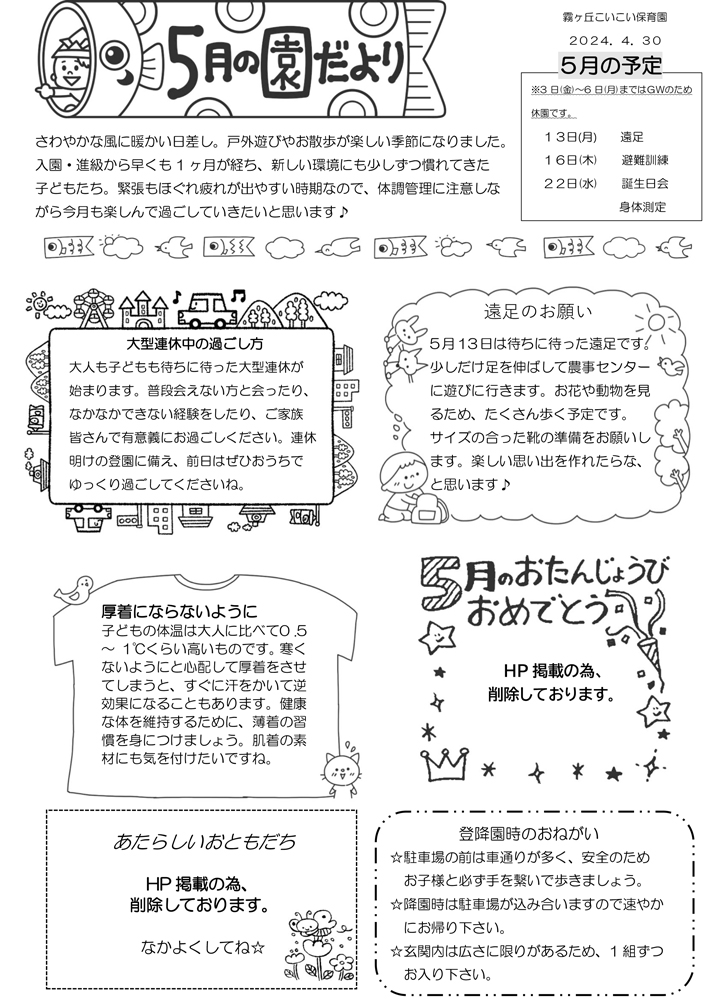 5月の園だより
霧ヶ丘こいこい保育園
2024. 4. 30
5月の予定
※3日(金)～6日(月)まではGWのため
休園です。
13日(月)　遠足
16日(木)　避難訓練
22日(水)　誕生日会
身体測定
さわやかな風に暖かい日差し。戸外遊びやお散歩が楽しい季節になりました。
入園・進級から早くも１ヶ月が経ち、新しい環境にも少しずつ慣れてきた
子どもたち。緊張もほぐれ疲れが出やすい時期なので、体調管理に注意しな
がら今月も楽しんで過ごしていきたいと思います♪
大型連休中の過ごし方
大人も子どもも待ちに待った大型連休が
始まります。普段会えない方と会ったり、
なかなかできない経験をしたり、ご家族
皆さんで有意義にお過ごしください。連休
明けの登園に備え、前日はぜひおうちで
ゆっくり過ごしてくださいね。
遠足のお願い
5月13日は待ちに待った遠足です。
少しだけ足を伸ばして農事センター
に遊びに行きます。お花や動物を見
るため、たくさん歩く予定です。
サイズの合った靴の準備をお願いし
ます。楽しい思い出を作れたらな、
と思います♪
厚着にならないように
子どもの体温は大人に比べて0.5
～ 1℃くらい高いものです。寒く
ないようにと心配して厚着をさせ
てしまうと、すぐに汗をかいて逆
効果になることもあります。健康
な体を維持するために、薄着の習
慣を身につけましょう。肌着の素
材にも気を付けたいですね。
5月のおたんじょうび
おめでとう
HP掲載の為、
削除しております。
あたらしいおともだち
HP掲載の為、
削除しております。
なかよくしてね☆
登降園時のおねがい
☆駐車場の前は車通りが多く、安全のため
お子様と必ず手を繋いで歩きましょう。
☆降園時は駐車場が込み合いますので速やか
にお帰り下さい。
☆玄関内は広さに限りがあるため、1組ずつ
お入り下さい。